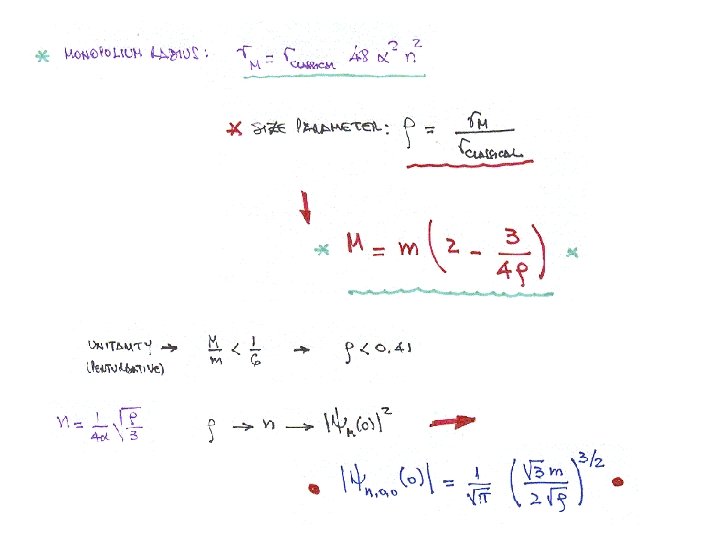 * MONOPOLIUM RADIUS: r_M = r_CLASSICAL 48 α² n²
* SIZE PARAMETER: ρ = r_M / r_CLASSICAL
* M = m (2 - 3/4ρ) *
UNITARITY → M/m < 1/6 → ρ < 0.41
(PERTURBATIVE)
n = 1/4α √(ρ/3) ρ → n → |ψ_M(0)|² →
• |ψ_n,00(0)| = 1/√π (√3 m / 2√ρ)^3/2 •